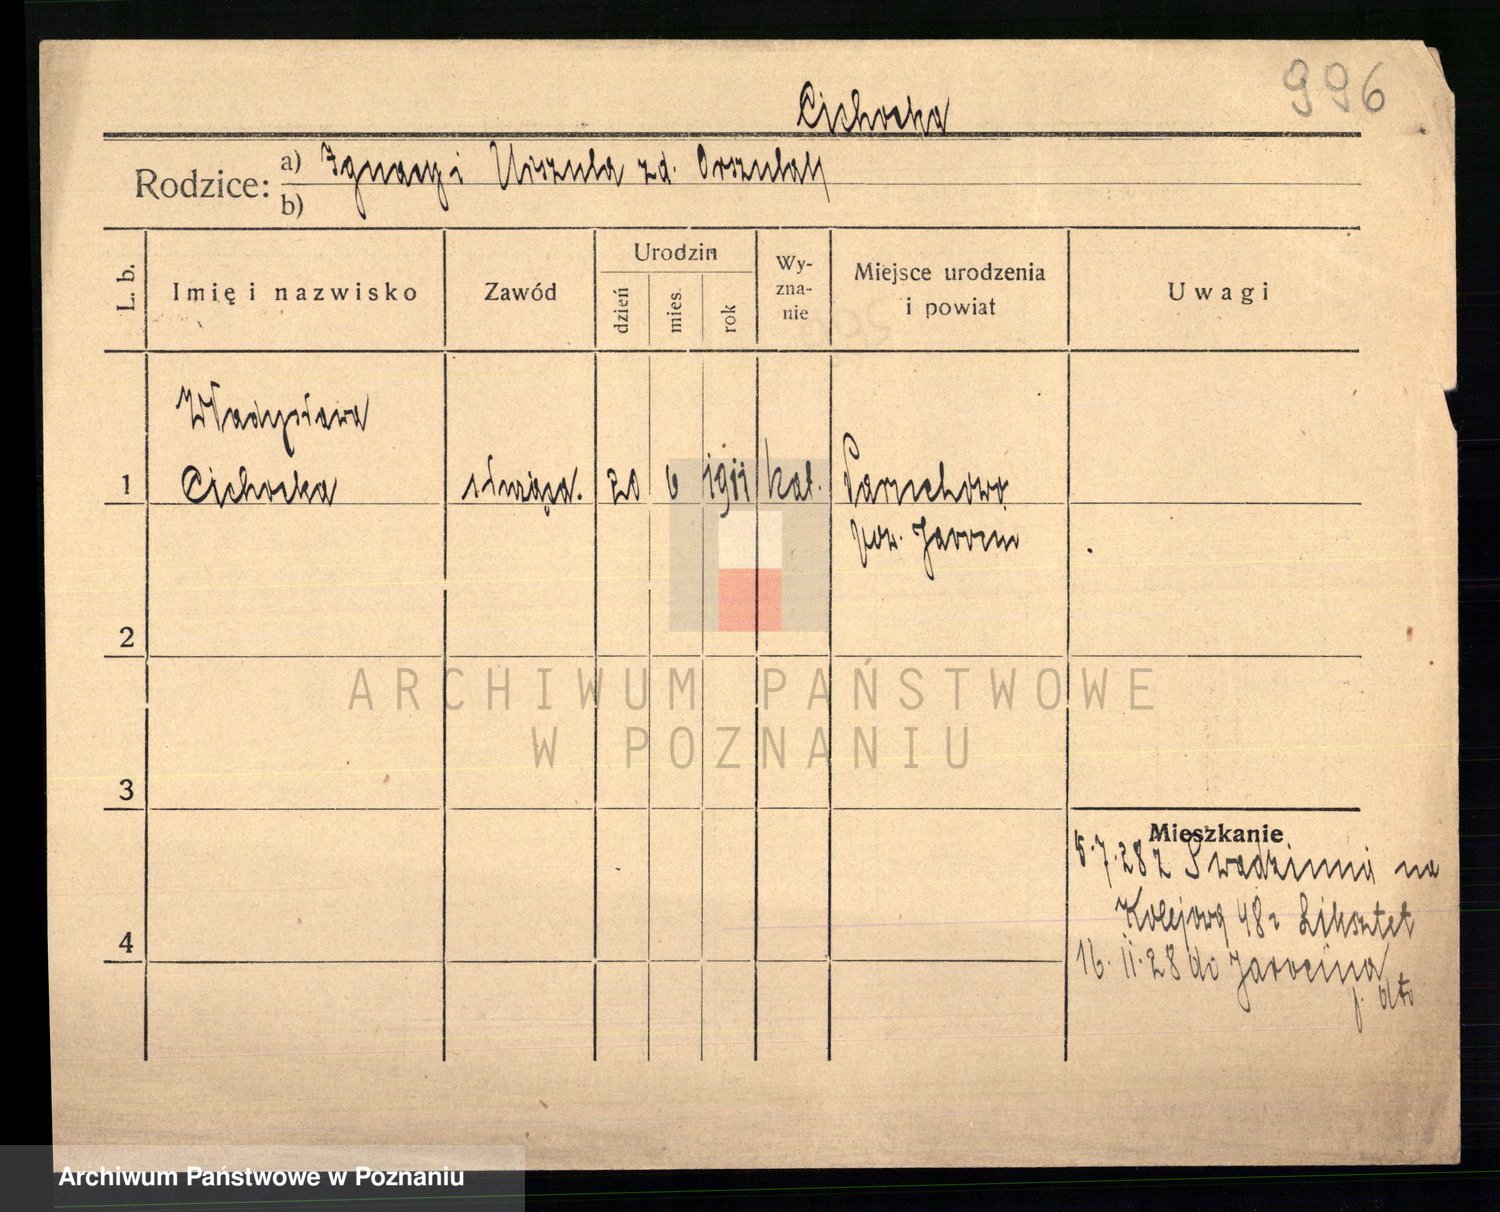 996
Cichocka
Rodzice: a) Ignacy i Urszula zd. Orszulak
b)
L. b.
Imię i nazwisko
Zawód
Urodzin
dzień
mies.
rok
Wy-
zna-
nie
Miejsce urodzenia
i powiat
Uwagi
Władysława
1 Cichocka służąca. 20 6 1911 kat.
pow. Jarocin
2
3
4
Mieszkanie
5.7.28 z na
Kolejową 48
16.11.28 do Jarocina
ARCHIWUM PAŃSTWOWE
W POZNANIU
Archiwum Państwowe w Poznaniu